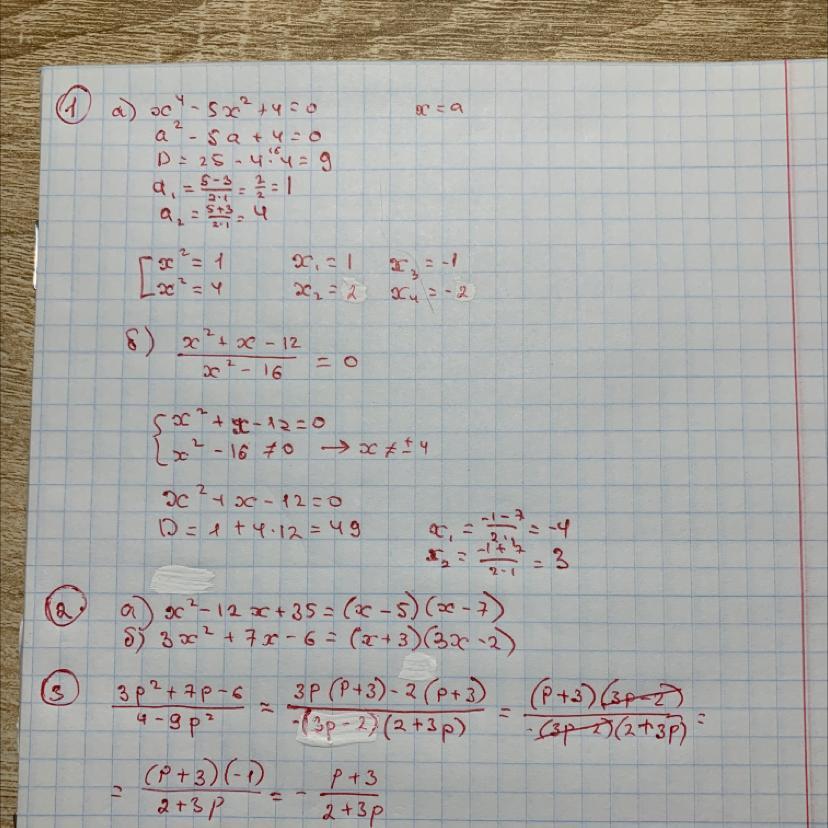 1 а) x⁴ - 5x² + 4 = 0 x = a
a² - 5a + 4 = 0
D = 25 - 4·4 = 9
a₁ = (5-3)/(2·1) = 2/2 = 1
a₂ = (5+3)/(2·1) = 4
[ x² = 1 x₁ = 1 x₃ = -1
x² = 4 x₂ = 2 x₄ = -2
б) (x² + x - 12)/(x² - 16) = 0
{ x² + x - 12 = 0
x² - 16 ≠ 0 → x ≠ ±4
x² + x - 12 = 0
D = 1 + 4·12 = 49 x₁ = (-1-7)/(2·1) = -4
x₂ = (-1+7)/(2·1) = 3
2. а) x² - 12x + 35 = (x - 5)(x - 7)
б) 3x² + 7x - 6 = (x + 3)(3x - 2)
3 (3p² + 7p - 6)/(4 - 9p²) = (3p(p+3) - 2(p+3))/(-(3p-2)(2+3p)) = ((p+3)(3p-2))/(-(3p-2)(2+3p)) =
= ((p+3)(-1))/(2+3p) = - (p+3)/(2+3p)